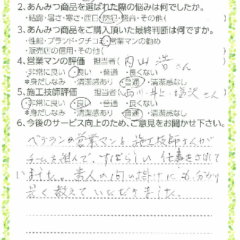 2.あんみつ商品を選ばれた際の悩みは何でしたか。
・結露・暑さ・寒さ・西日・防犯・防音・その他(
3.あんみつ商品をご購入頂いた最終判断は何ですか。
・性能・ブランド・クチコミ・営業マンの勧め
・販売店の信用・その他(
4.営業マンの評価 担当者( 内山 さん
・非常に良い ・良い ・普通 ・良くない
*身だしなみ ・清潔感あり ・普通
5.施工技師評価 担当者( 西川・村上・塩沢さん
・非常に良い ・良い ・普通 ・良くない
*身だしなみ ・清潔感あり ・普通 ・
6.今後のサービス向上のため、ご意見をお聞かせ下さい。
ベテランの営業マンと施工技師さんが
チームを組んで、すばらしい仕事をされて
いました。素人の問い掛けにも、
早く教えていただきました。